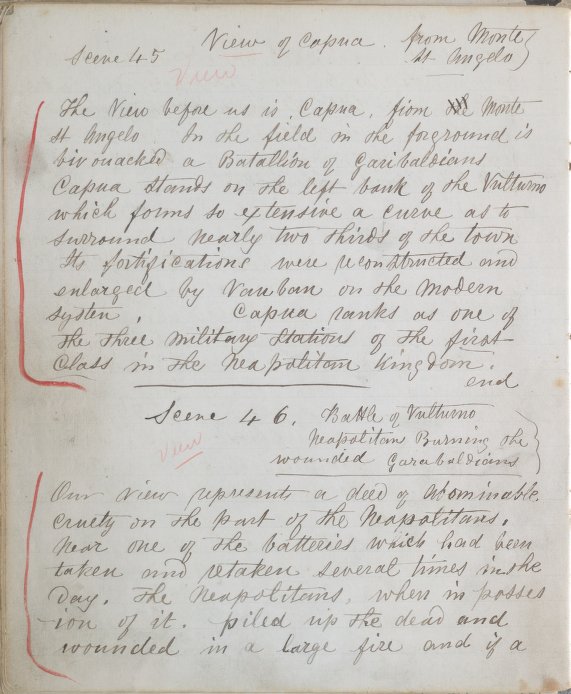 Scene 45 View of Capua. from Monte
St Angelo
View
The View before us is Capua, from the Monte
St Angelo In the field in the forground is
bivouacked a Batallion of Garibaldians
Capua Stands on the left bank of the Vulturno
which forms so extensive a curve as to
surround nearly two thirds of the town
Its fortifications were reconstructed and
enlarged by Vauban on the Modern
system, Capua ranks as one of
the three military Stations of the first
Class in the Neapolitan Kingdom.
end
Scene 46. Battle of Vulturno
Neapolitan Burning the
View
wounded Garabaldians
Our view represents a deed of Abominable
cruety on the part of the Neapolitans.
Near one of the batteries which had been
taken and retaken several times in the
Day. The Neapolitans, when in posses
-ion of it. piled up the dead and
wounded in a large fire and if a